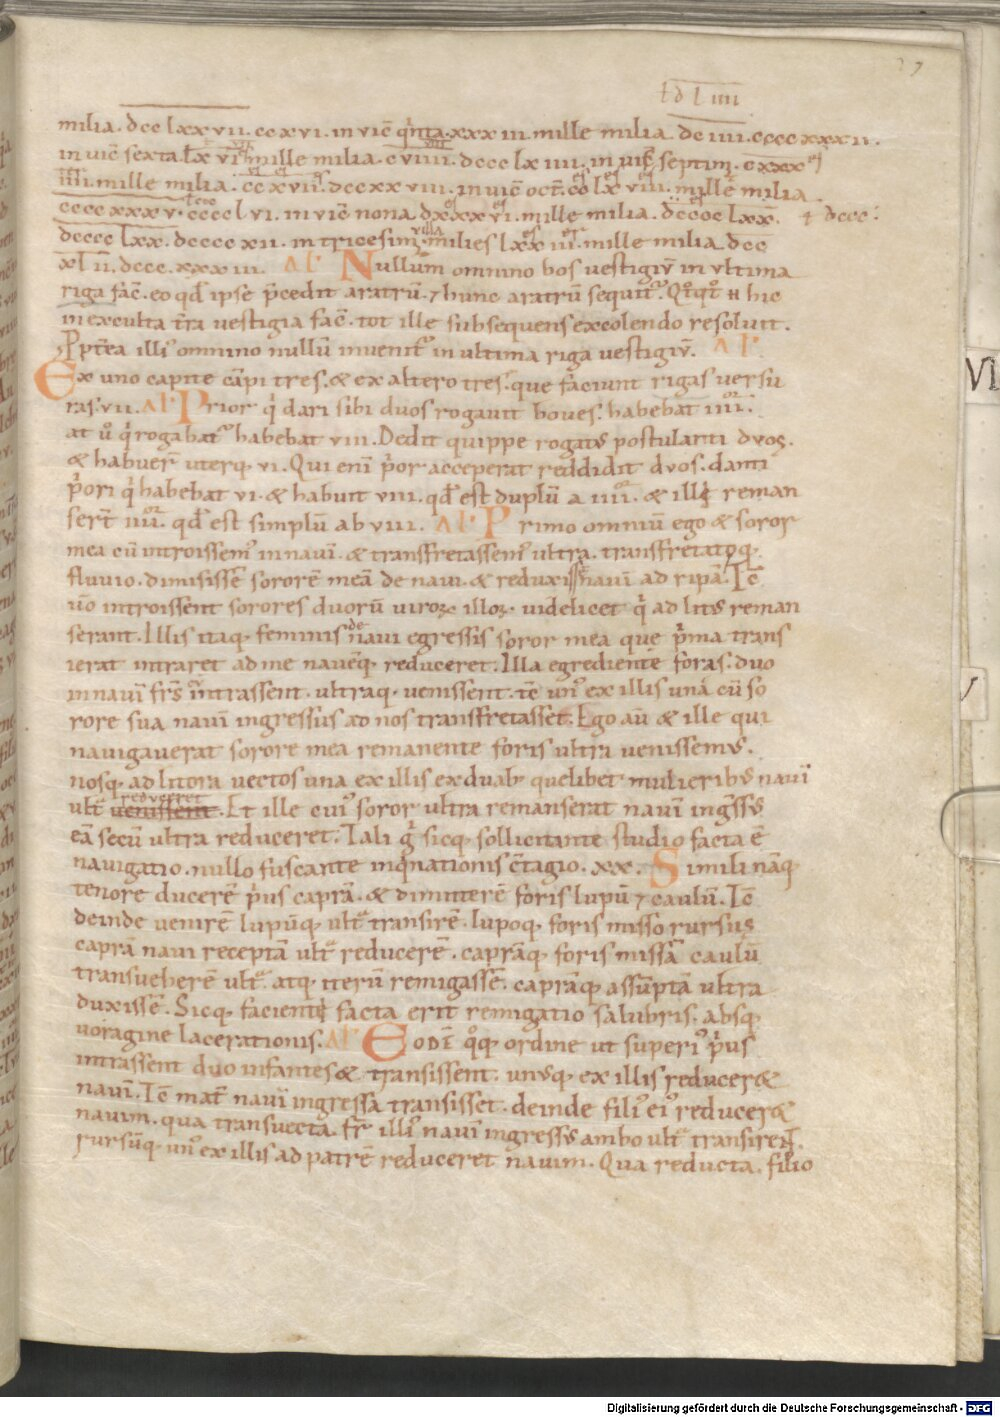 27
milia. dcc lxxvii. ccxvi. in vic̄ q̇nta. xxx iii. mille milia. dc iiii. cccc xxx ii.
in vic̄ sexta. lx vi. mille milia. c viiii. dccc lx iiii. in vic̄ septim̄. cxxx
iiii. mille milia. cc xvii. dcc xx viii. in vic̄ oct̄. lx viii. mille milia
cccc xxx v. cccc l vi. in vic̄ nona. dxxx vi. mille milia. dccc lxx. dccc.
dcccc lxx. dcccc xii. in tricesim̄ milies lxx iii. mille milia dcc
xl ii. dccc. xxx iii. Nullum omnino bos vestigiū in vltima
riga fac̄. eo qd̄ ipse p̄cedit aratrū. ⁊ hunc aratrū sequit̉. Qt̊qt̊ hic
in exculta t̄ra vestigia fac̄. tot ille subsequens excolendo resoluit.
Ppt̄ea illi᾽ omnino nullū invenit̉ in ultima riga vestigiū.
Ex uno capite cāpi tres. & ex altero tres. que faciunt rigas versu
ras. vii. Prior q̇ dari sibi duos rogavit boves. habebat iiiior.
at v̊ q̇ rogabat᾽ habebat viii. Dedit quippe rogatus postulanti dvos.
& habuer̄ uterq; vi. Qui eni p̄or acceperat reddidit dvos. danti
p̄ori q̇ habebat vi. & habuit viii. qd̄ est duplū a iiiior. & illi reman
sert̄ iiiior. qd̄ est simplū ab viii. Primo omniū ego & soror
mea cū introissem᾽ in navī. & transfretassem᾽ ultra. transfretatoq;
fluvio. dimisissē sororē meā de navi. & reduxissē navī ad ripā. Tc̄
v̄o introissent sorores duorū viroꝝ illoꝝ. videlicet q̇ ad litus reman
serant. Illis itaq; feminis de navi egressis soror mea que p̄ma trans
ierat intraret ad me navēq; reduceret. Illa egrediente foras. duo
in navī fr̄s intrassent. ultraq; venissent. tc̄ un᾽ ex illis unā cū so
rore sua navī ingressus ad nos transfretasset. Ego aū & ille qui
navigaverat sorore mea remanente foris ultra venissemus.
nosq; ad litora vectos una ex illis ex duab; quelibet mulieribus navī
ult̄ venissent. redveret Et ille cui᾽ soror ultra remanserat navī ingr̄ss᾽
eā secū ultra reduceret. Tali ḡ sicq; sollicitante studio facta ē
navigatio. nullo fuscante inq̇nationis c̄tagio. xx. Simili nāq;
tenore ducerē p̄us caprā. & dimitterē foris lupū ⁊ caulū. Tc̄
deinde venirē lupūq; ult̄ transirē. lupoq; foris misso rursus
caprā navi receptā ult̄ reducerē. caprāq; foris missā caulū
transveherē ult̄. atq; iterū remigassē. caprāq; assūptā ultra
duxissē. Sicq; faciente facta erit remigatio salubris. absq;
voragine lacerationis. Eodī q̊q; ordine ut superi᾽ p̄us
intrassent duo infantes & transissent. unusq; ex illis reducer&
navī. Tc̄ mat̄ navī ingressa transisset. deinde fili᾽ ei᾽ reducer&
navim. qua transvecta. fr̄ illi᾽ navī ingressus ambo ult̄ transirent.
rursūq; un᾽ ex illis ad patrē reduceret navim. Qua reducta. filio
VI
Digitalisierung gefördert durch die Deutsche Forschungsgemeinschaft - DFG